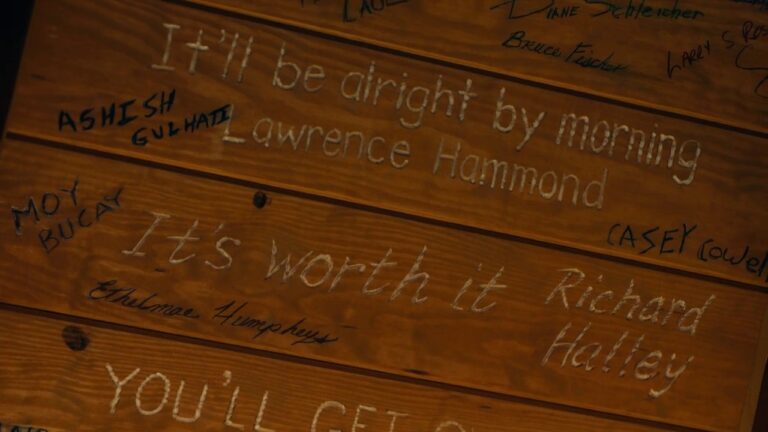 Diane Schleicher
Bruce Fischer
LARRY
It'll be alright by morning
ASHISH
GULHATI
Lawrence Hammond
CASEY Cowell
MOY
BUCAY
It's worth it Richard
Halley
Ethelmae Humpheys
YOU'LL GET